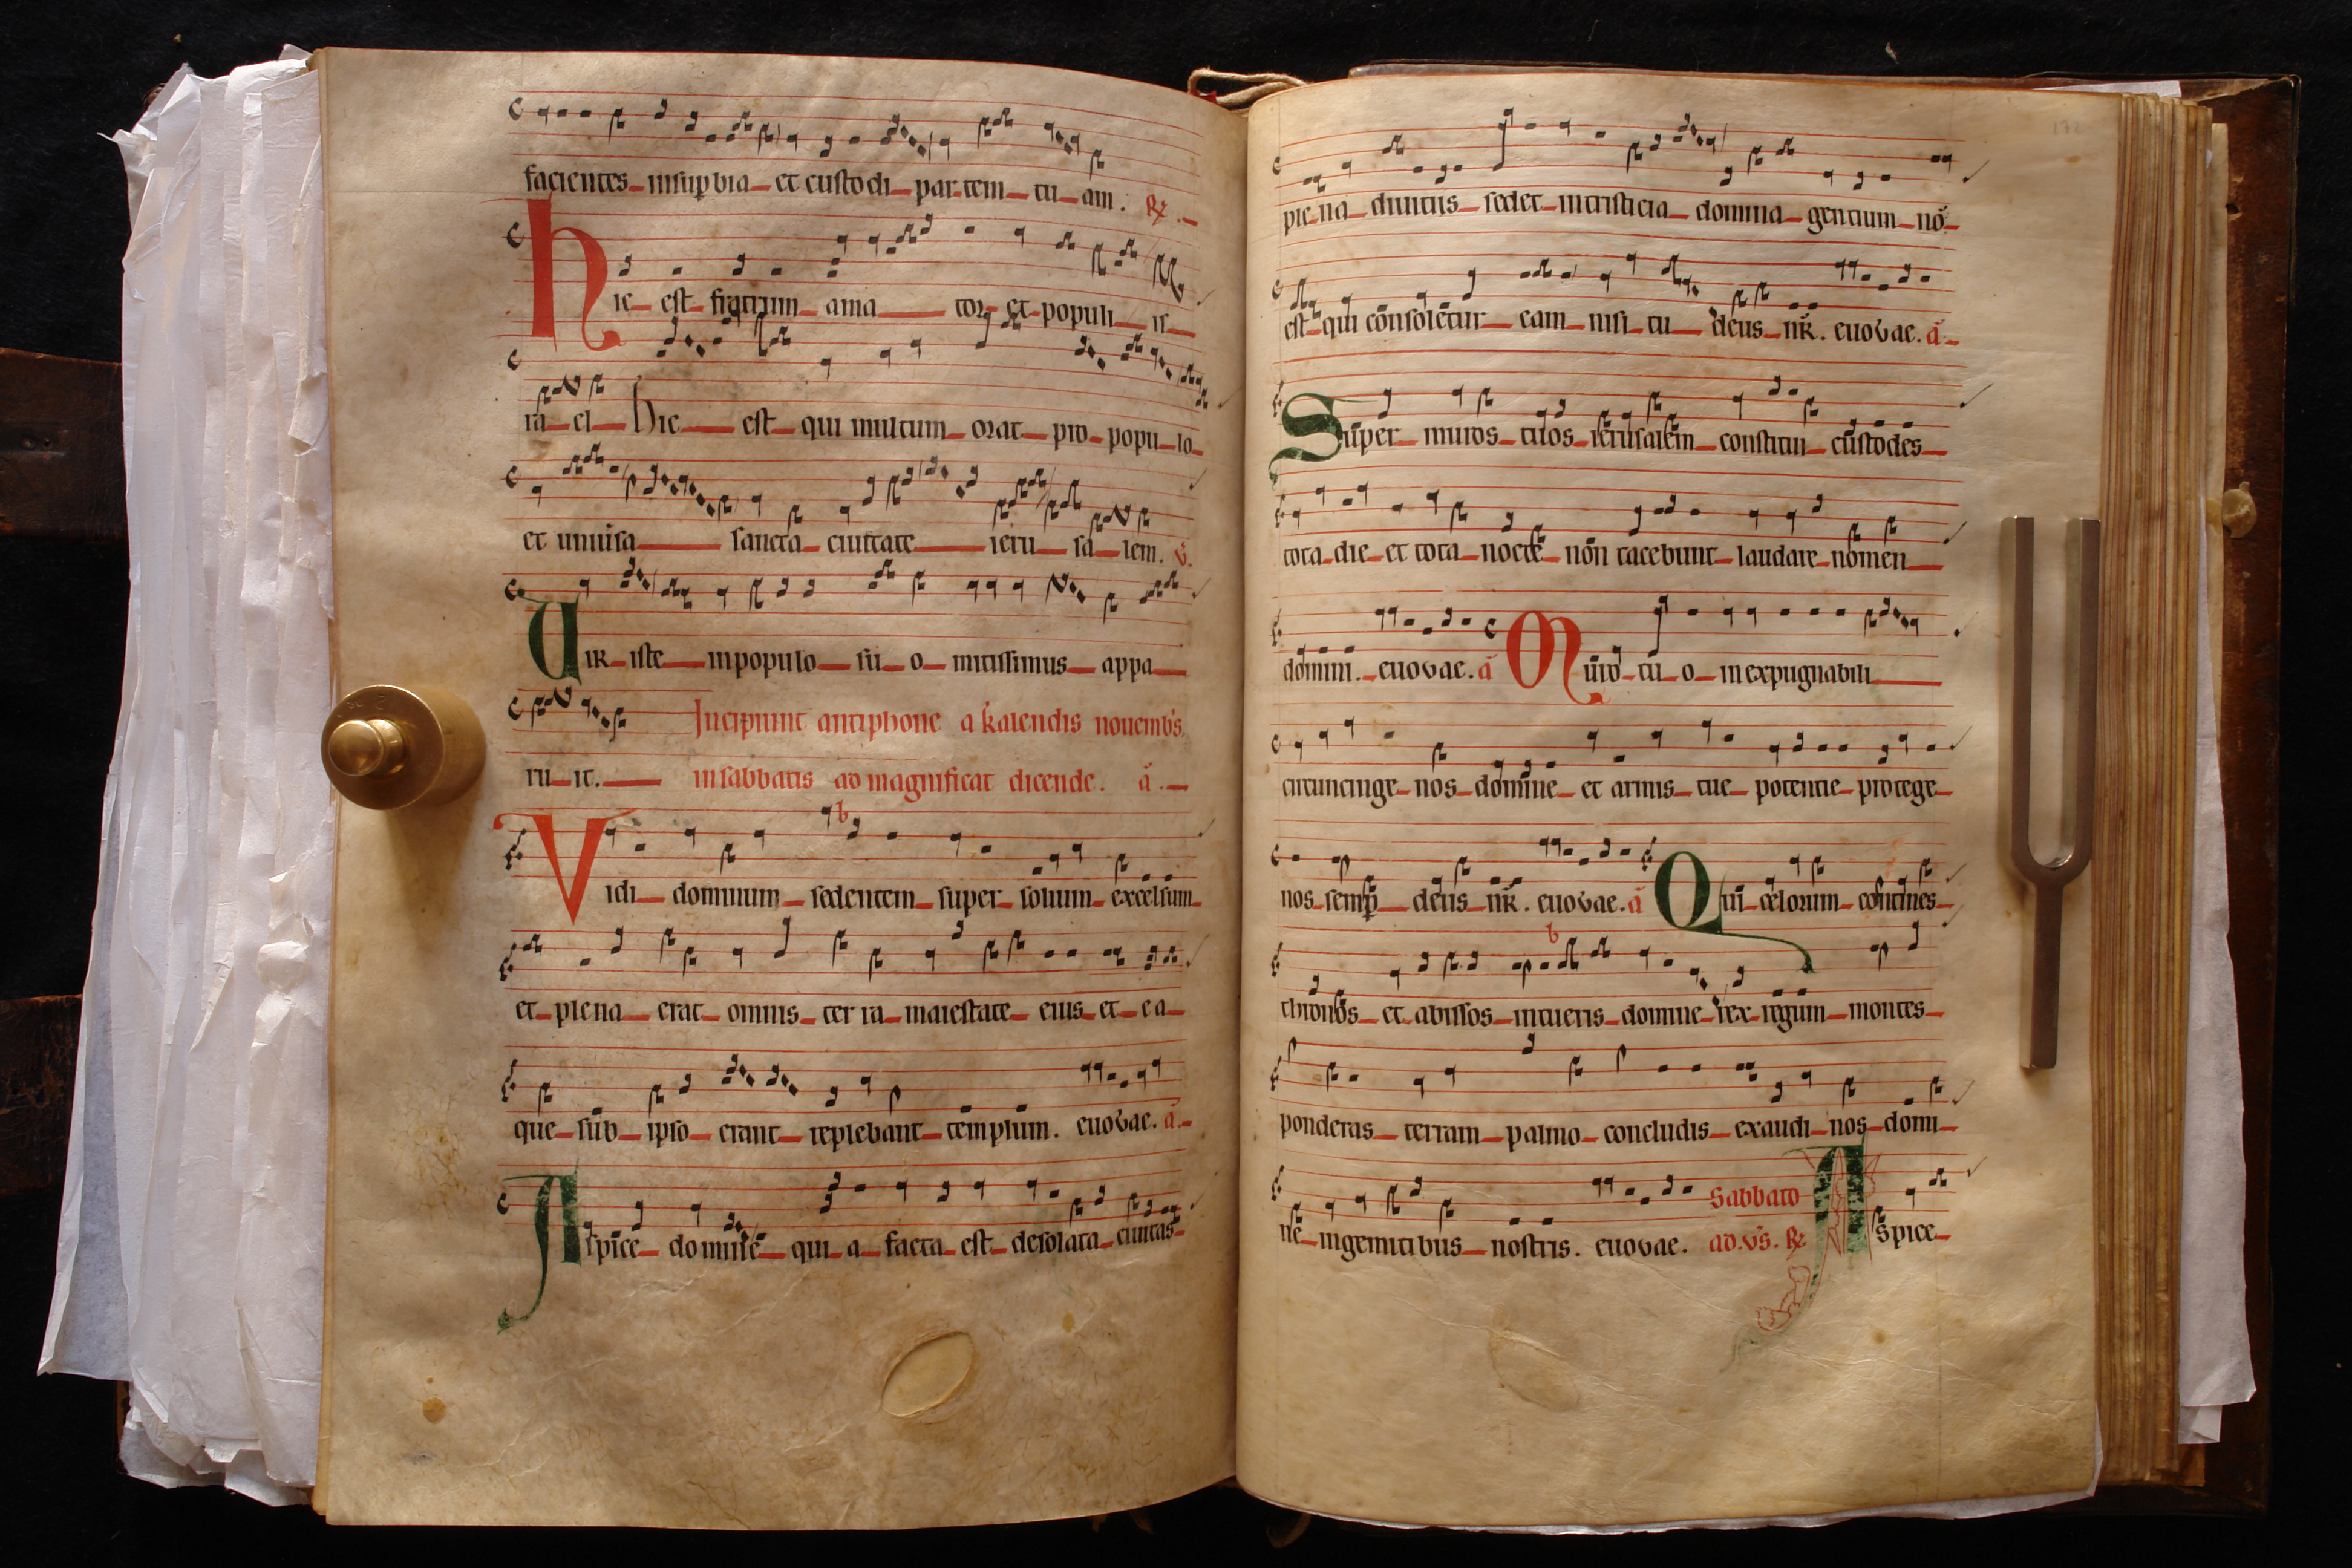 facientes insup̱bia et custodi partem tuam. R̸.
Hic est fratrum amator et populi is
rael Hic est qui multum orat pro populo
et uniũsa sancta ciuitate ierusalem. v̉.
Uir iste inpopulo suo mitissimus appa
Incipiunt antiphone a kalendis nouemb's
ruit. insabbatis ad magnificat dicende. a̾.
Vidi dominum sedentem super solium excelsum
et plena erat omnis terra maiestate eius et ea
que sub ipso erant replebant templum. euouae. a̾.
Aspice domine quia facta est desolata ciuitas
plena diuitiis sedet intristicia domina gentium nō
est qui consoletur eam nisi tu deus nr̄. euouae. a̾.
Super muros tuos ierusalem constitui custodes
tota die et tota nocte non tacebunt laudare nomen
domini. euouae. a̾ Muro tuo inexpugnabili
circumcinge nos domine et armis tue potentie protege
nos semp̱ deus nr̄. euouae. a̾ Qui celorum contines
thronos et abissos intueris domine rex regum montes
ponderas terram palmo concludis exaudi nos domi
Sabbato
ne ingemitibus nostris. euouae. ad. vs̄. R̸ Aspice
172